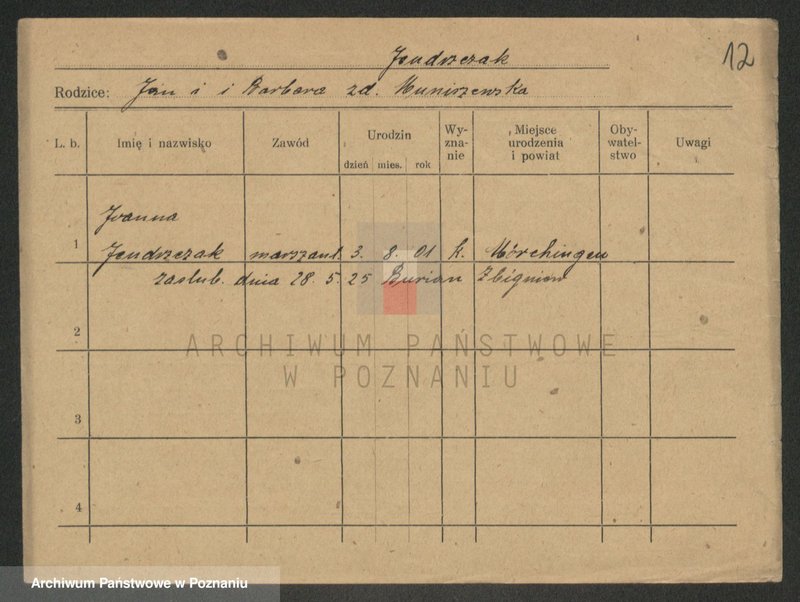 Jendrzczak
12
Rodzice: Jan i i Barbara zd. Muniszewska
L. b.
Imię i nazwisko
Zawód
Urodzin
dzień mies. rok
Wy-
zna-
nie
Miejsce
urodzenia
i powiat
Oby-
watel-
stwo
Uwagi
Joanna
1 Jendrzczak 3. 8. 01 k. Mörchingen
zaślub. dnia 28. 5. 25 Burian Zbigniew
2
ARCHIWUM PAŃSTWOWE
W POZNANIU
3
4
Archiwum Państwowe w Poznaniu